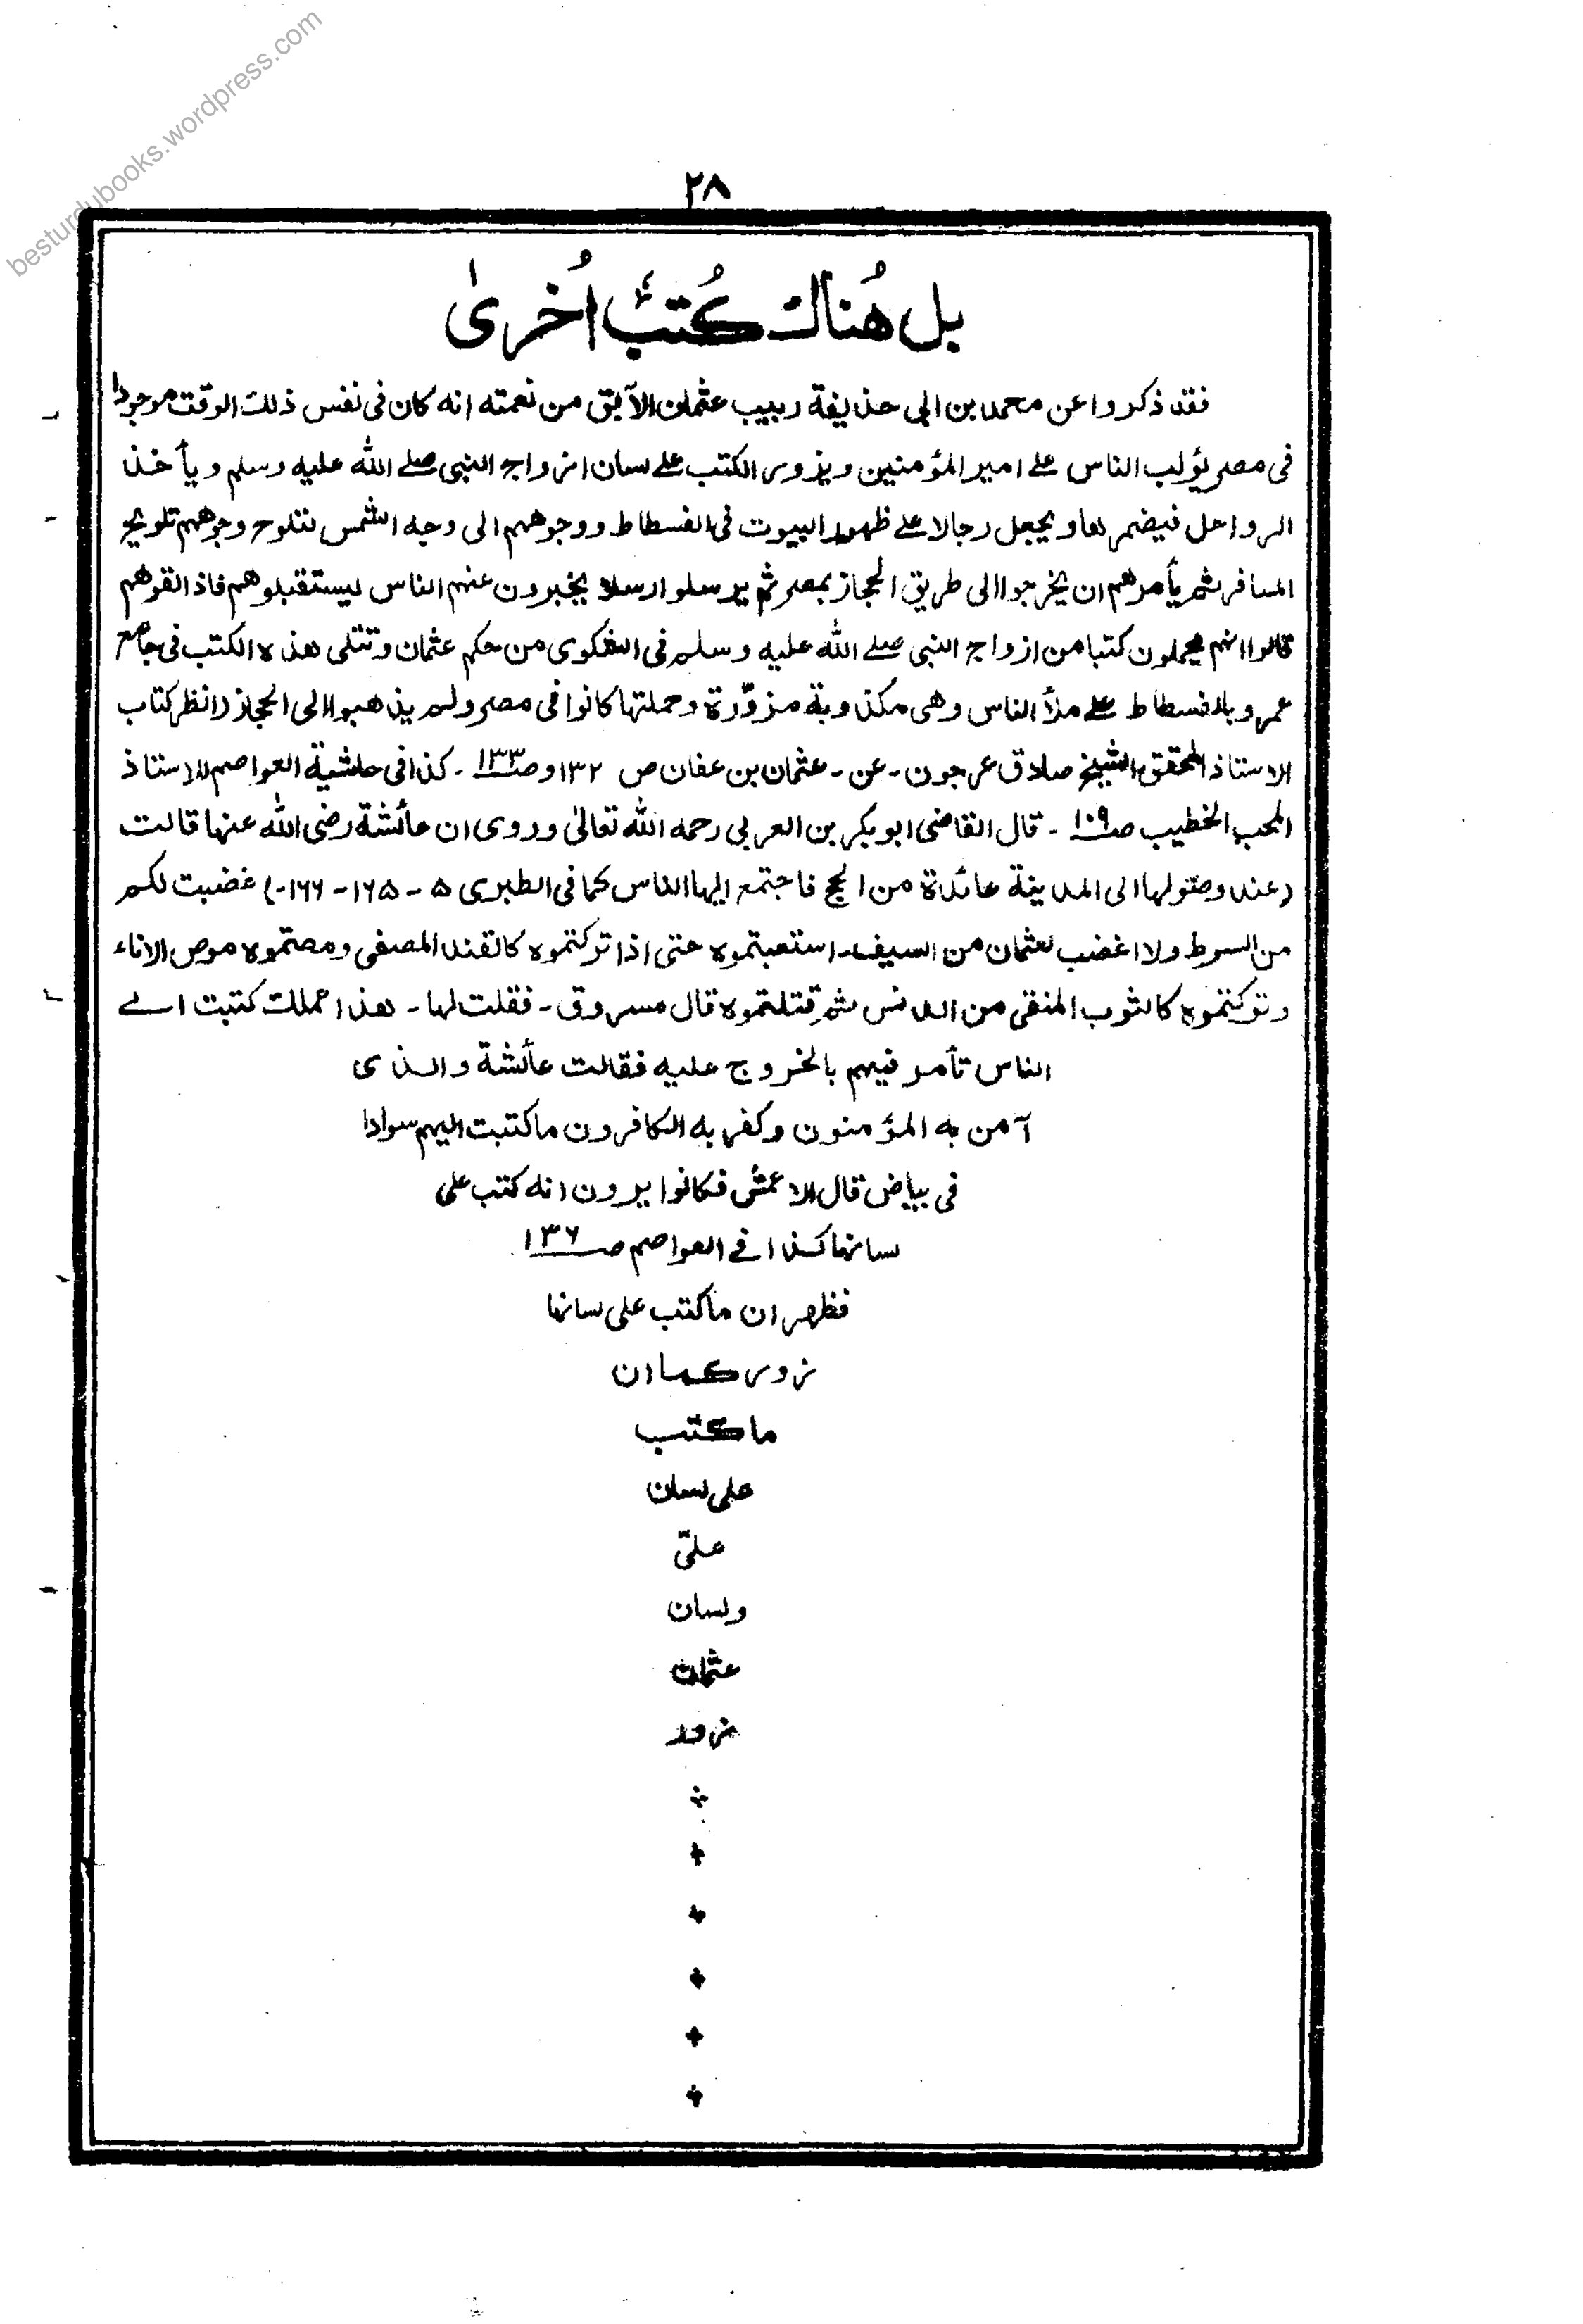 besturdubooks.wordpress.com
٢٨
بل هُناك كُتبٌ اُخرىٰ
فقد ذكروا عن محمد بن ابي حذيفة ربيب عثمان الآبق من نعمته انه كان فى نفس ذلك الوقت موجودا
فى مصر يؤلب الناس على امير المؤمنين ويزور الكتب على لسان ازواج النبى صلے الله عليه وسلم ويأخذ
الرواحل فيضمرها ويجعل رجالا على ظهور البيوت فى الفسطاط ووجوههم الى وجه الشمس تتلوح وجوههم تلويح
المسافر ثم يأمرهم ان يخرجوا الى طريق الحجاز بمصر ثم يرسلوا رسلا يخبرون عنهم الناس ليستقبلوهم فاذا لقوهم
قالوا انهم يحملون كتبا من ازواج النبى صلے الله عليه وسلم فى الشكوى من حكم عثمان وتتلى هذه الكتب فى جامع
عمرو بالفسطاط على ملأ الناس وهى مكذوبة مزوّرة وحملتها كانوا فى مصر ولم يذهبوا الى الحجاز (انظر كتاب
الاستاذ المحقق الشيخ صادق عرجون - عن - عثمان بن عفان ص ١٣٢ و صـ١٣٣ - كذا فى حاشية العواصم للاستاذ
المحب الخطيب صـ١٠٩ - قال القاضى ابو بكر بن العربي رحمه الله تعالىٰ وروى ان عائشة رضى الله عنها قالت
(عند وصولها الى المدينة عائدة من الحج فاجتمع اليها الناس كما فى الطبرى ٥ - ١٦٥ - ١٦٦-) غضبت لكم
من السوط ولا اغضب لعثمان من السيف - استعبتموه حتى اذا تركتموه كالقند المصفى ومصتموه موص الاناء
وتركتموه كالثوب المنقى من الدنس ثم قتلتموه قال مسروق - فقلت لها - هذا عملك كتبت الے
الناس تأمر فيهم بالخروج عليه فقالت عائشة والذى
آمن به المؤمنون وكفر به الكافرون ما كتبت اليهم سوادا
فى بياض قال الاعمش فكانوا يرون انه كتب على
لسانها كذا فے العواصم صـ١٣٦
فظهر ان ما كتب على لسانها
زور كما ان
ما كتب
على لسان
علىّ
ولسان
عثمان
زور